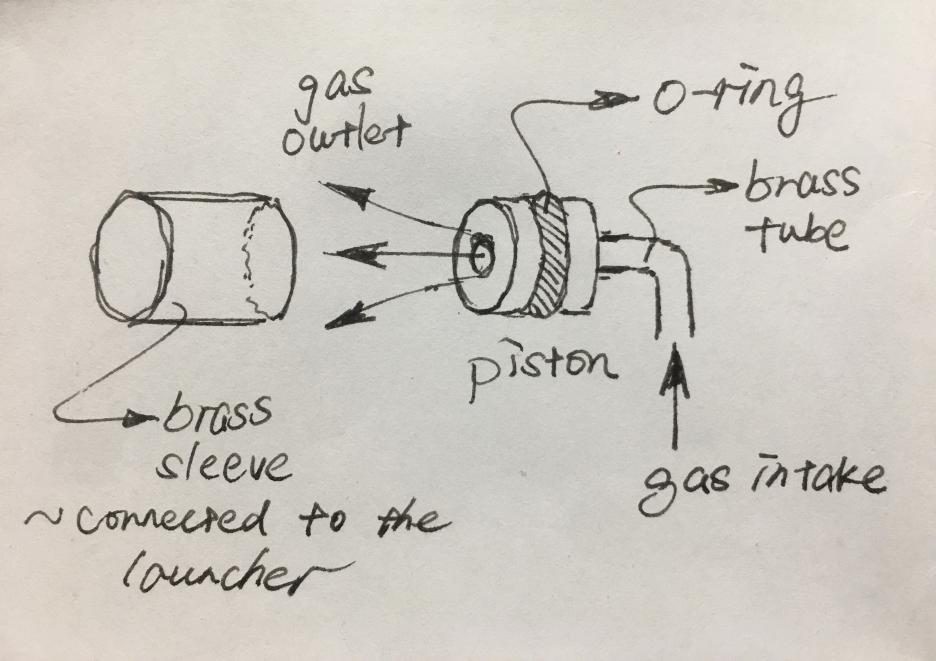 gas
outlet
o-ring
brass
tube
piston
gas intake
brass
sleeve
~connected to the
launcher